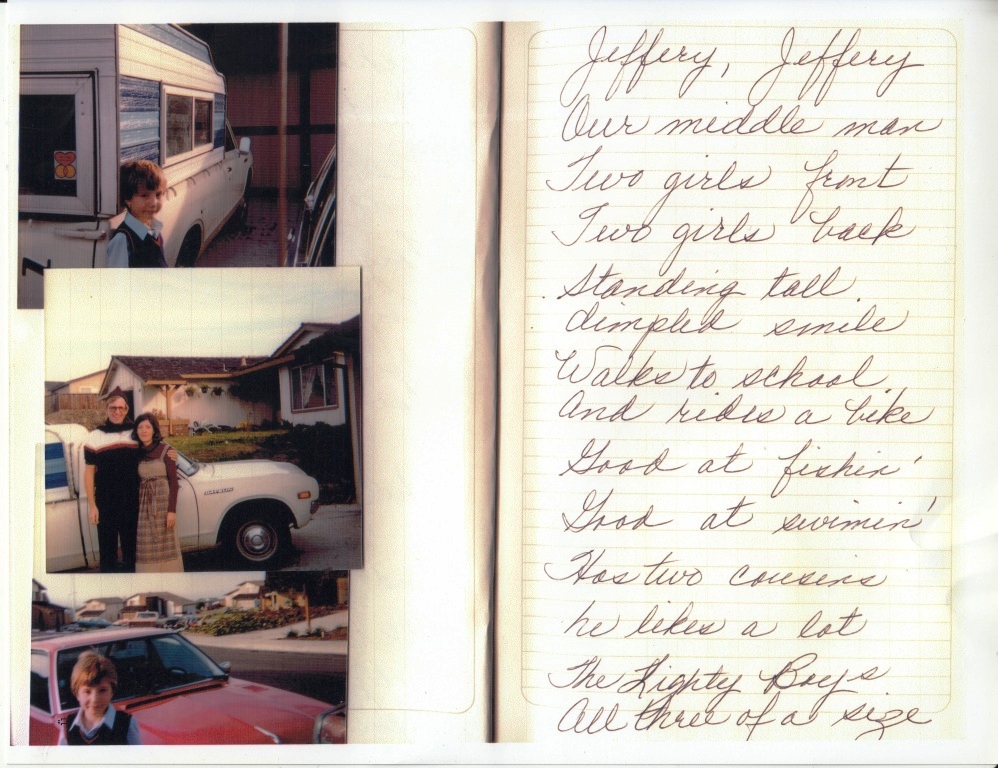 DATSUN
Jeffery, Jeffery
Our middle man
Two girls front
Two girls back
Standing tall
dimpled smile
Walks to school
And rides a bike
Good at fishin'
Good at swimin'
Has two cousins
he likes a lot
The Boys
All three of a size